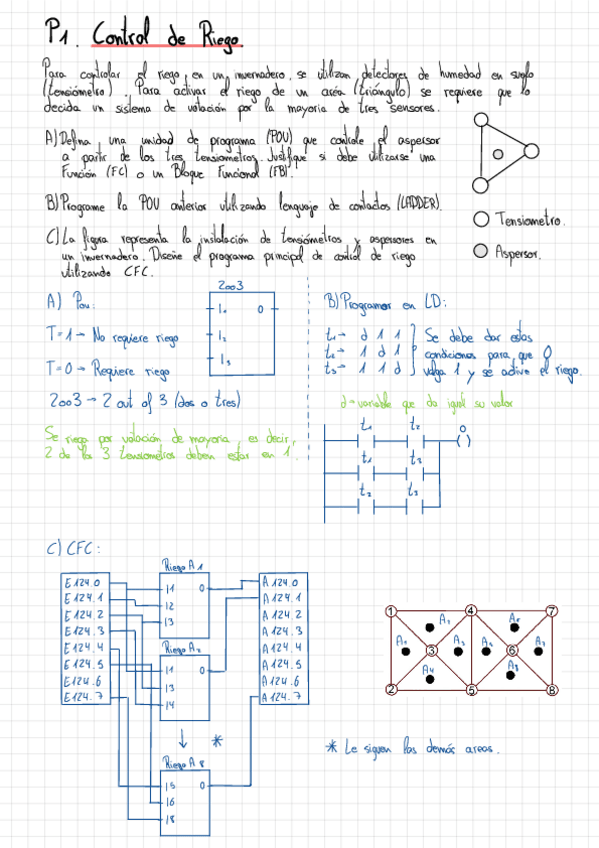 P1. Control de Riego.
Para controlar el riego, en un invernadero, se utilizan detectores de humedad en suelo
(tensiómetro). Para activar el riego de un area (triángulo) se requiere que lo
decida un sistema de votación por la mayoria de tres sensores.
A) Defina, una unidad de programa (POU) que controle el aspersor
a partir de los tres tensiometros. Justifique si debe utilizarse una
Función (FC) o un Bloque Funcional (FB).
B) Programe la POU anterior utilizando lenguaje de contactos (LADDER).
C) La figura representa la instalación de tensiómetros y aspersores en
un invernadero. Diseñe el programa principal de control de riego
utilizando CFC.
Tensiometro.
Aspersor.
A) Pou:
T=1 → No requiere riego
T=0 → Requiere riego
2oo3 → 2 out of 3 (dos o tres)
Se riega por votación de mayoria, es decir,
2 de los 3 tensiometros deben estar en 1.
2oo3
I1 O
I2
I3
B) Programar en LD:
t1→ d 1 1
t2→ 1 d 1
t3→ 1 1 d
Se debe dar estas
condiciones para que O
valga 1 y se active el riego.
d→variable que da igual su valor
t1 t2 O
t1 t3
t2 t3
C) CFC:
E124.0
E124.1
E124.2
E124.3
E124.4
E124.5
E124.6
E124.7
Riego A1
I1 O
I2
I3
Riego A2
I1 O
I3
I4
*
Riego A8
I5 O
I6
I8
A124.0
A124.1
A124.2
A124.3
A124.4
A124.5
A124.6
A124.7
1 4 7
3 6
2 5 8
* Le siguen las demás areas.